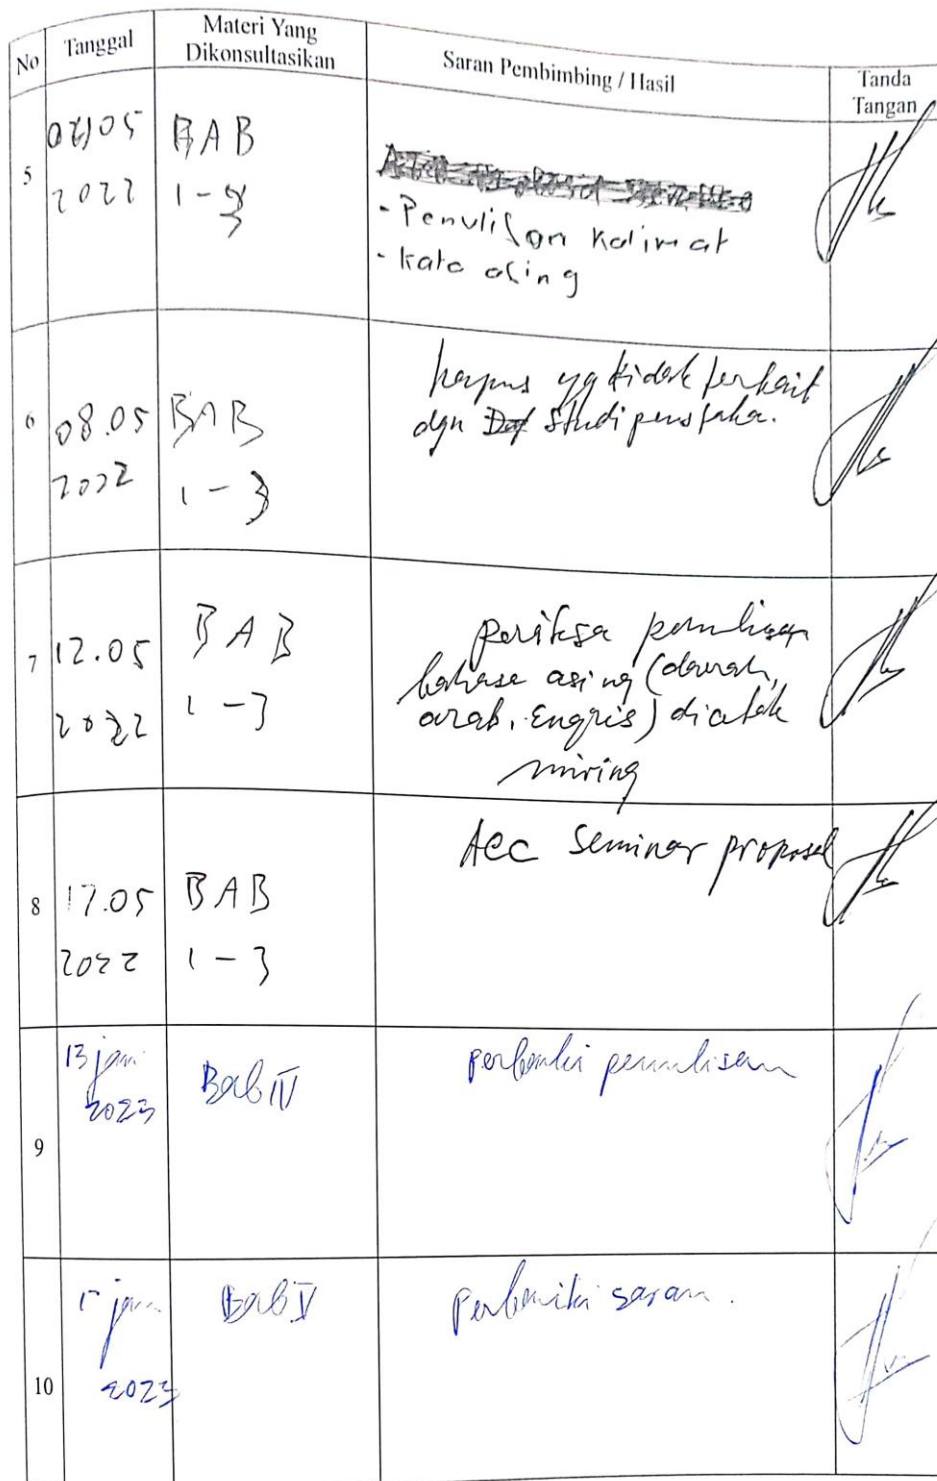 No Tanggal Materi Yang Dikonsultasikan Saran Pembimbing / Hasil Tanda Tangan
5 05 2022 BAB 1 - 3
- Penulisan Kalimat
- kata asing
6 08.05 2022 BAB 1 - 3
hapus yg tidak terkait
dgn studi pustaka.
7 12.05 2022 BAB 1 - 3
periksa penulisan
bahasa asing (daerah,
arab, Engris) dicetak
miring
8 17.05 2022 BAB 1 - 3
Acc Seminar proposal
9 13 jan 2023 Bab IV
perbaiki penulisan
10 jan 2023 Bab V
perbaiki saran.